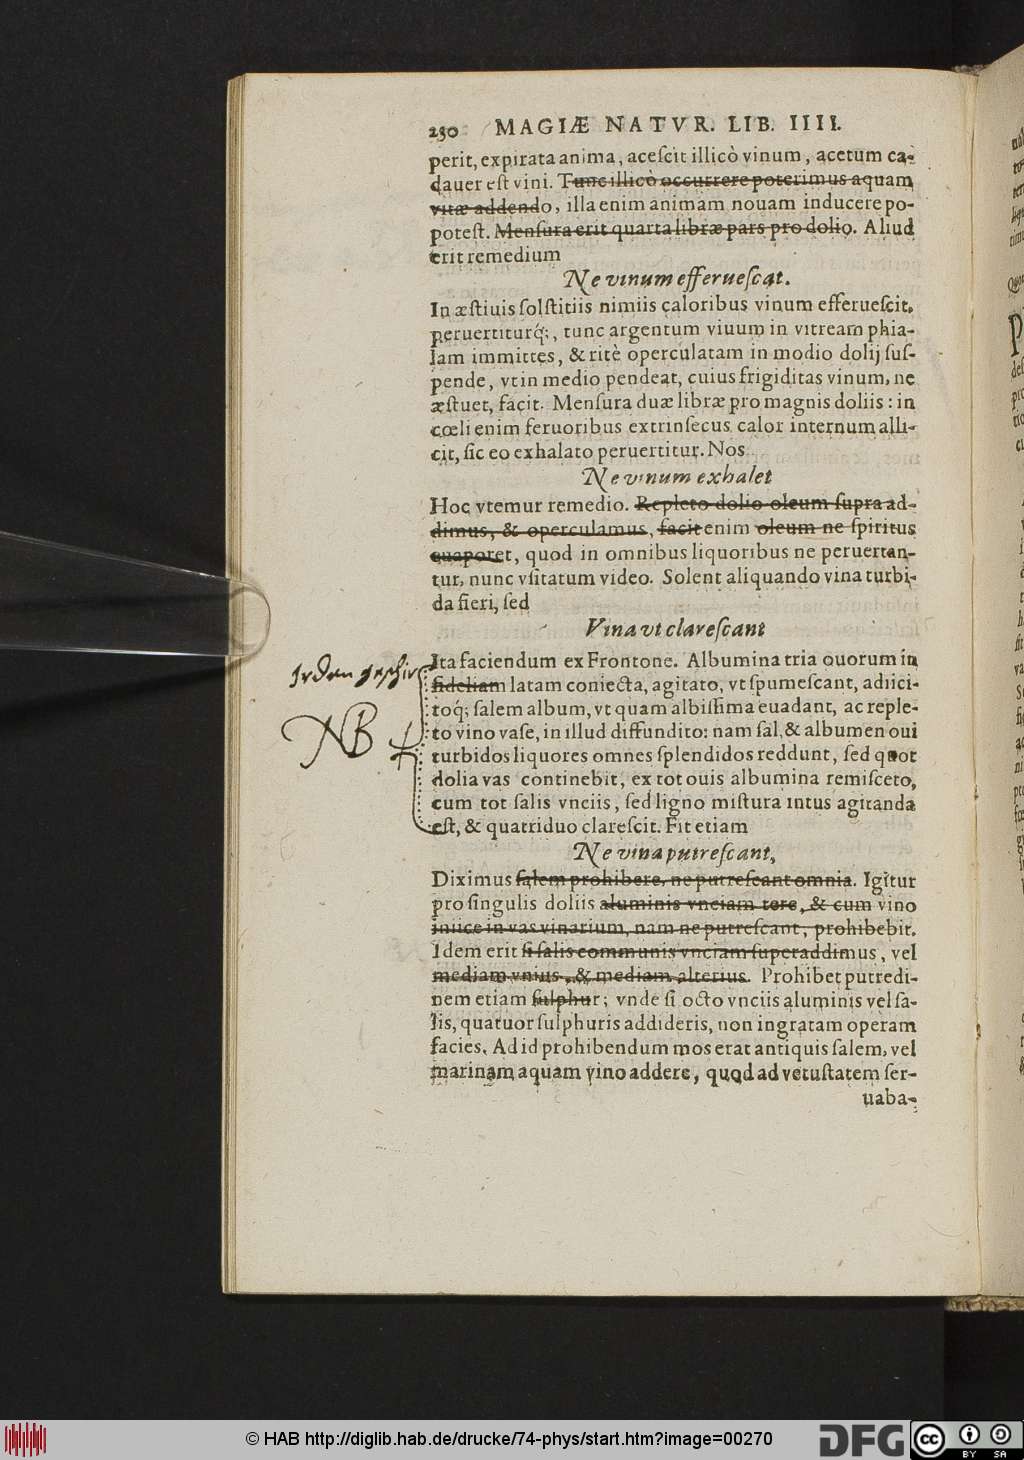 230 MAGIÆ NATVR. LIB. IIII.
perit, expirata anima, aceſcit illicò vinum, acetum ca-
dauer eſt vini. Tunc illicò occurrere poterimus aquam
vitæ addendo, illa enim animam nouam inducere po-
poteſt. Menſura erit quarta libræ pars pro dolio. Aliud
erit remedium
Ne vinum efferueſcat.
In æſtiuis ſolſtitiis nimiis caloribus vinum efferueſcit,
peruertiturq́;, tunc argentum viuum in vitream phia-
lam immittes, & ritè operculatam in modio dolij ſuſ-
pende, vt in medio pendeat, cuius frigiditas vinum, ne
æſtuet, facit. Menſura duæ libræ pro magnis doliis: in
cœli enim feruoribus extrinſecus calor internum alli-
cit, ſic eo exhalato peruertitur. Nos
Ne vinum exhalet
Hoc vtemur remedio. Repleto dolio oleum ſupra ad-
dimus, & operculamus, facit enim oleum ne ſpiritus
euaporet, quod in omnibus liquoribus ne peruertan-
tur, nunc vſitatum video. Solent aliquando vina turbi-
da fieri, ſed
Vina vt clareſcant
Ita faciendum ex Frontone. Albumina tria ouorum in
Irden geschir
fideliam latam coniecta, agitato, vt ſpumeſcant, adiici-
toq́; ſalem album, vt quam albiſſima euadant, ac reple-
NB
to vino vaſe, in illud diffundito: nam ſal, & albumen oui
turbidos liquores omnes ſplendidos reddunt, ſed quot
dolia vas continebit, ex tot ouis albumina remiſceto,
cum tot ſalis vnciis, ſed ligno miſtura intus agitanda
eſt, & quatriduo clareſcit. Fit etiam
Ne vina putreſcant,
Diximus ſalem prohibere, ne putreſcant omnia. Igitur
pro ſingulis doliis aluminis vnciam tere, & cum vino
iniice in vas vinarium, nam ne putreſcant, prohibebit.
Idem erit ſi ſalis communis vnciam ſuperaddimus, vel
mediam vnius, & mediam alterius. Prohibet putredi-
nem etiam ſulphur; vnde ſi octo vnciis aluminis vel ſa-
lis, quatuor ſulphuris addideris, non ingratam operam
facies. Ad id prohibendum mos erat antiquis ſalem, vel
marinam aquam vino addere, quod ad vetuſtatem ſer-
uaba-
© HAB http://diglib.hab.de/drucke/74-phys/start.htm?image=00270
DFG
cc BY SA